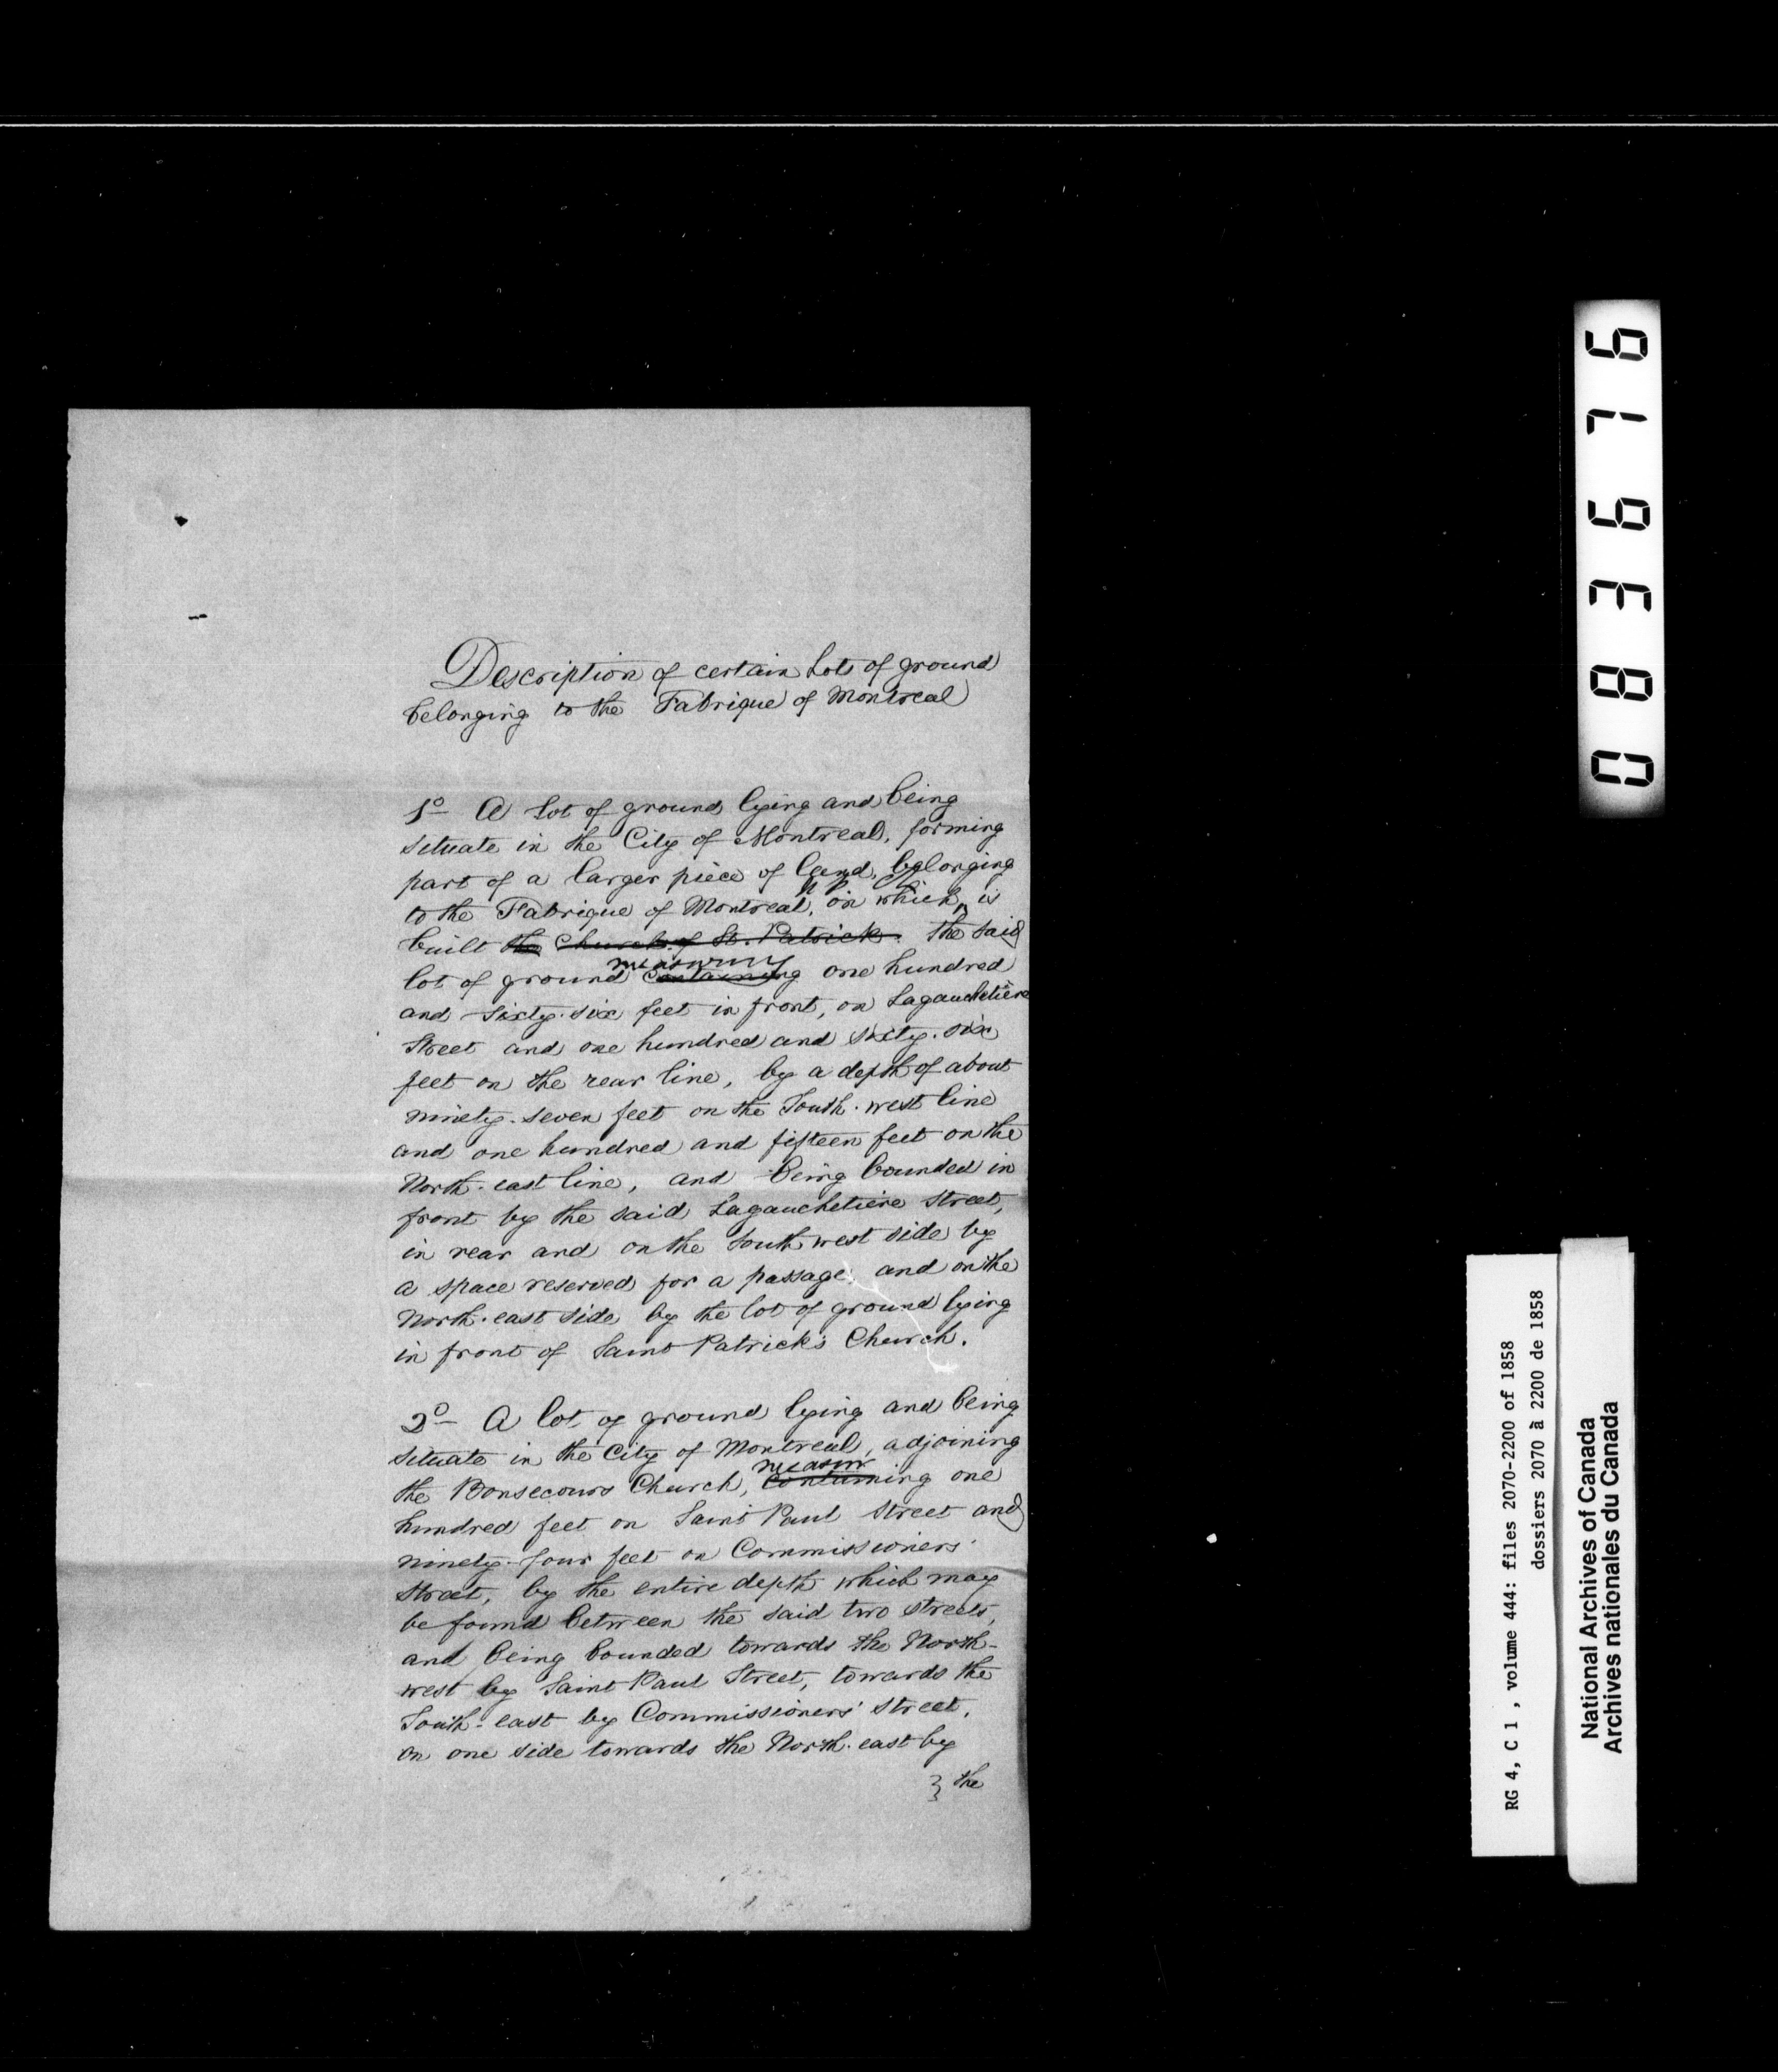 Description of certain Lots of ground
belonging to the Fabrique of Montreal
1º A lot of ground lying and being
situate in the City of Montreal, forming
part of a larger piece of land, belonging
to the Fabrique of Montreal, on which is
built the Church of St. Patrick. The said
measuring
lot of ground containing one hundred
and sixty-six feet in front, on Lagauchetière
Street and one hundred and sixty-six
feet on the rear line, by a depth of about
ninety-seven feet on the South-west line
and one hundred and fifteen feet on the
North-east line, and being bounded in
front by the said Lagauchetière Street,
in rear and on the South west side by
a space reserved for a passage, and on the
North-east side by the lot of ground lying
in front of Saint Patrick's Church.
2º A lot of ground lying and being
situate in the City of Montreal, adjoining
measur
the Bonsecours Church, containing one
hundred feet on Saint Paul Street and
ninety-four feet on Commissioners'
Street, by the entire depth which may
be found between the said two streets,
and being bounded towards the North-
west by Saint Paul Street, towards the
South-east by Commissioners' Street,
on one side towards the North-east by
the
083676
RG 4, C 1 , volume 444: files 2070-2200 of 1858
dossiers 2070 à 2200 de 1858
National Archives of Canada
Archives nationales du Canada